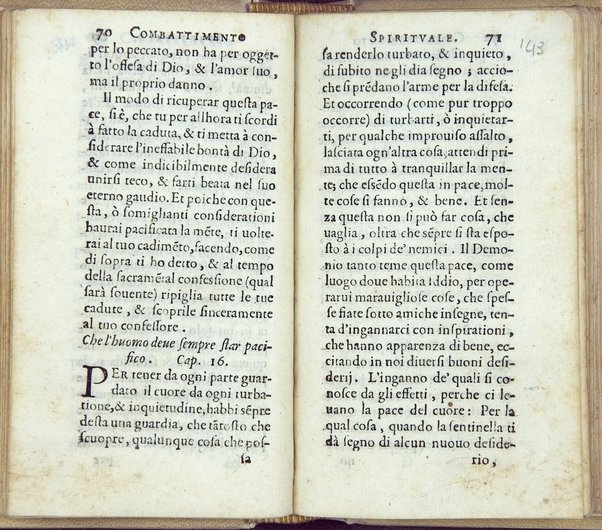 70 COMBATTIMENTO
per lo peccato, non ha per ogget-
to l'offesa di Dio, & l'amor suo,
ma il proprio danno.
Il modo di ricuperar questa pa-
ce, si è, che tu per allhora ti scordi
à fatto la caduta, & ti metta à con-
siderare l'ineffabile bontà di Dio,
& come indicibilmente desidera
unirsi teco, & farti beata nel suo
eterno gaudio. Et poiche con que-
sta, ò somiglianti considerationi
haurai pacificata la mẽte, ti uolte-
rai al tuo cadimẽto, facendo, come
di sopra ti ho detto, & al tempo
della sacramẽtal confessione (qual
sarà souente) ripiglia tutte le tue
cadute, & scoprile sinceramente
al tuo confessore.
Che l'huomo deue sempre star paci-
fico. Cap. 16.
PER tener da ogni parte guar-
dato il cuore da ogni turba-
tione, & inquietudine, habbi sẽpre
desta una guardia, che tãtosto che
scuopre, qualunque cosa che pos-
sa
SPIRITVALE. 71
143
sa renderlo turbato, & inquieto,
di subito ne gli dia segno; accio-
che si prẽdano l'arme per la difesa.
Et occorrendo (come pur troppo
occorre) di turbarti, ò inquietar-
ti, per qualche improuiso assalto,
lasciata ogn'altra cosa, attendi pri-
ma di tutto à tranquillar la men-
te; che essẽdo questa in pace, mol-
te cose si fanno, & bene. Et sen-
za questa non si può far cosa, che
uaglia, oltra che sẽpre si sta espo-
sto à i colpi de' nemici. Il Demo-
nio tanto teme questa pace, come
luogo doue habita Iddio, per ope-
rarui marauigliose cose, che spes-
se fiate sotto amiche insegne, ten-
ta d'ingannarci con inspirationi,
che hanno apparenza di bene, ec-
citando in noi diuersi buoni desi-
derij. L'inganno de' quali si co-
nosce da gli effetti, perche ci le-
uano la pace del cuore: Per la
qual cosa, quando la sentinella ti
dà segno di alcun nuouo deside-
rio,